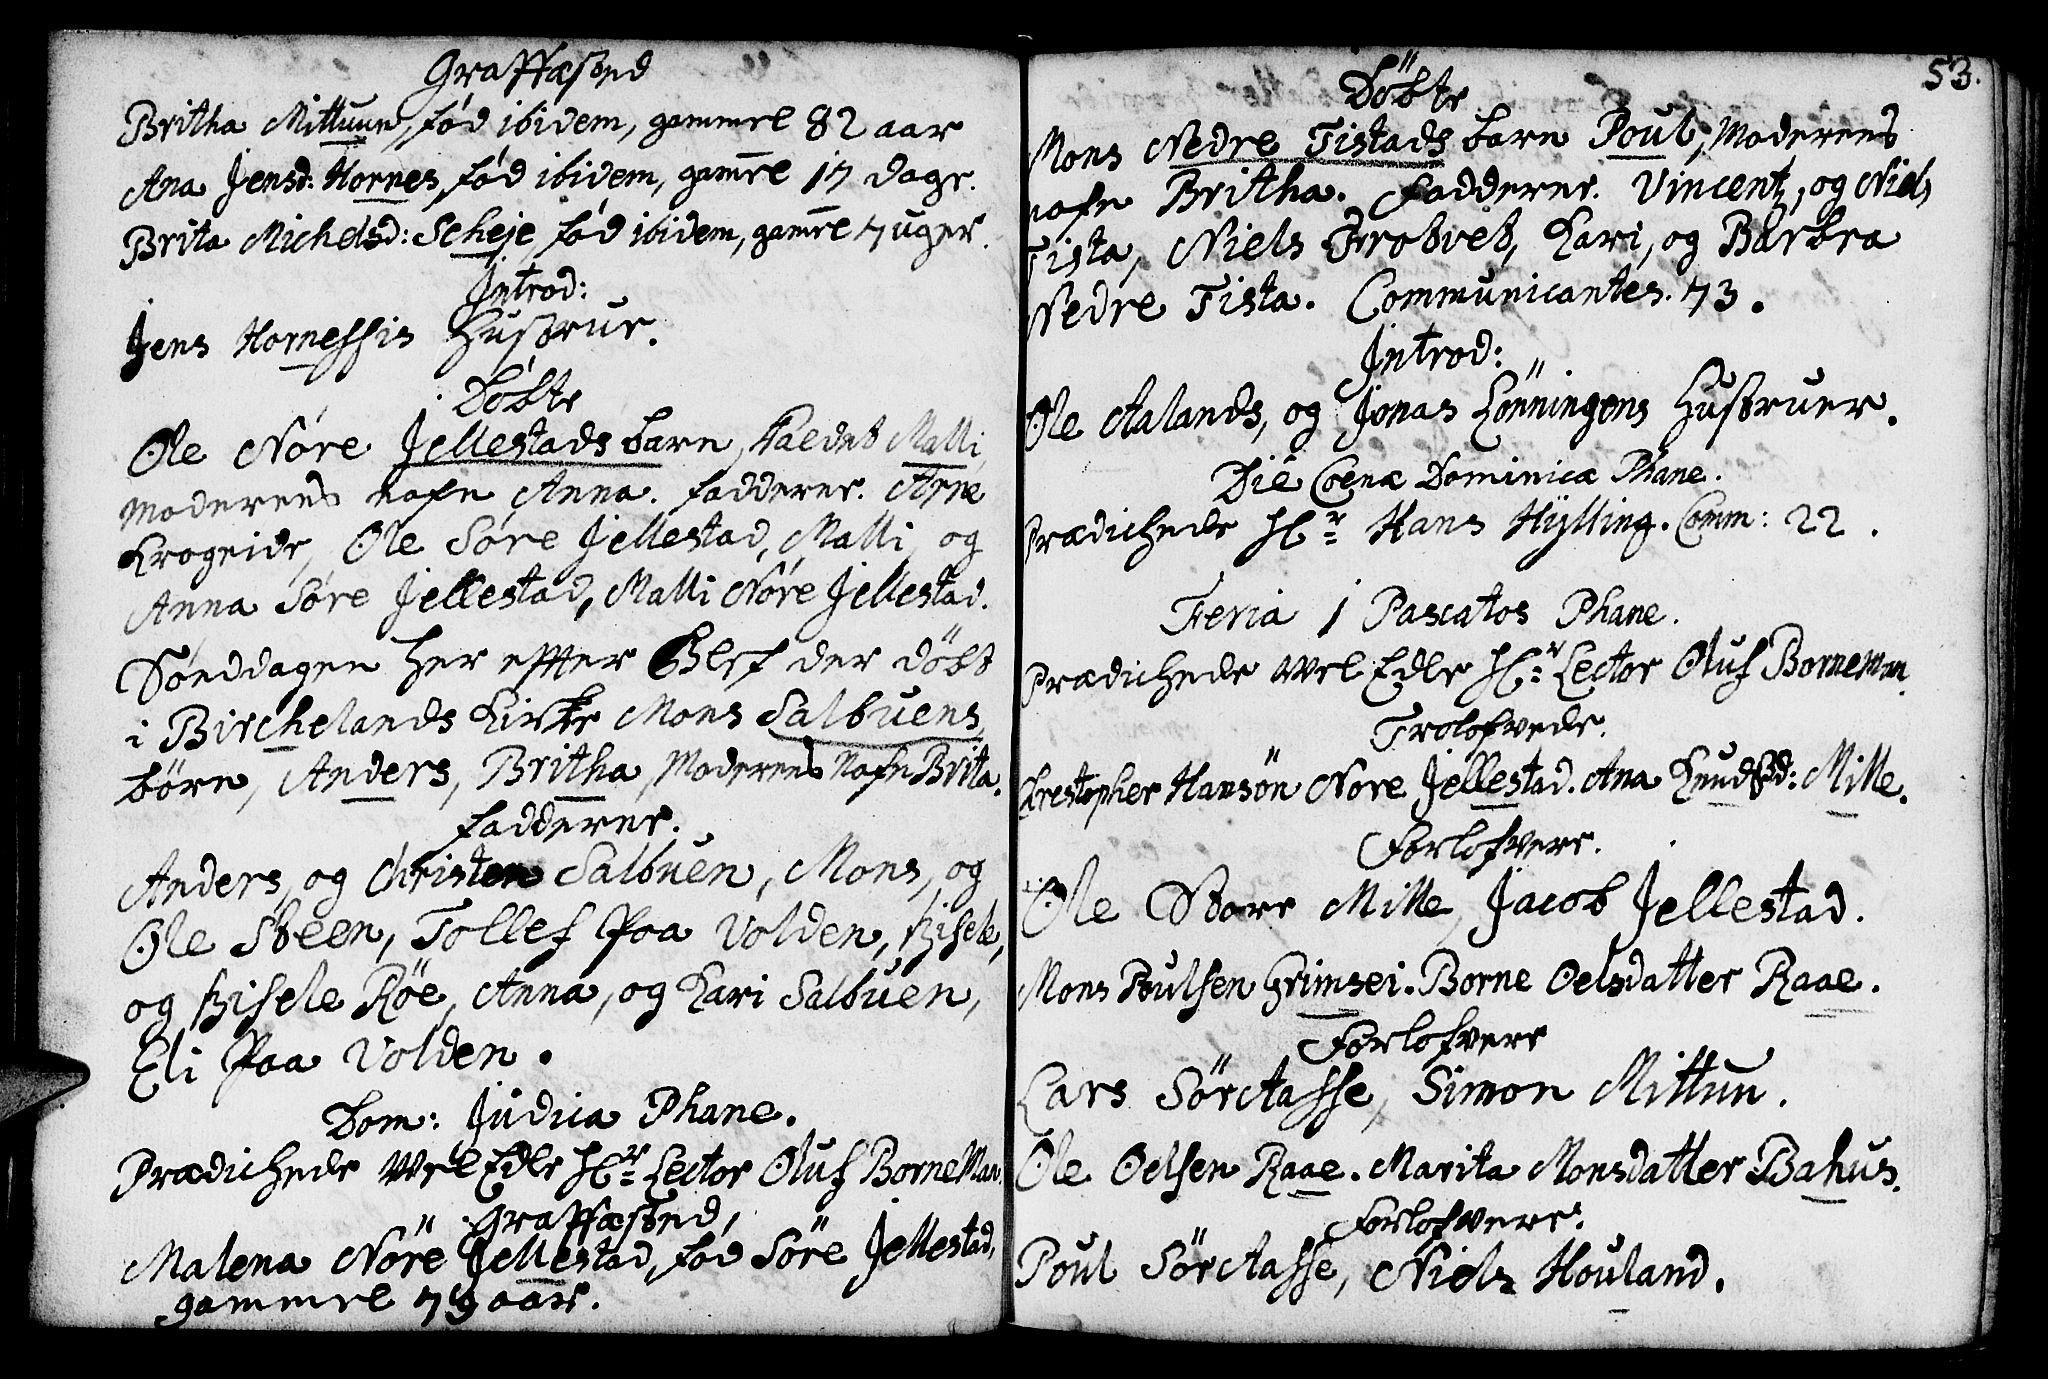 Graffæsted
Britha Mittuun, fød ibidem, gammel 82 aar
Ana Jensd: Hornes, fød ibidem, gamel 17 dage.
Brita Michelsd: Scheje, fød ibidem, gamel 7 uger.
Introd:
Jens Hornessis Hustrue.
Döbte
Ole Nóre Jellestads barn, kaldet Malli,
Moderens nafn Anna. fadderne. Arne
Krogeide, Ole Sóre Jellestad, Malli, og
Anna Sóre Jellestad, Malli Nóre Jellestad.
Sónddagen her effter blef der döbt
i Birchelands Kirke Mons Salbuens
börn, Anders, Britha, Moderens Nafn Brita.
fadderne.
Anders, og Christen Salbuen, Mons, og
Ole Steen, Tollef Paa Volden, Gisele,
og Gisele Röe, Anna, og Kari Salbuen,
Eli Paa Volden.
Dom: Judica Phane.
Prædichede Wel Edle Hr: Lector Oluf BorneMan.
Graffæsted,
Malena Nöre Jellestad, fød Söre Jellestad,
gammel 79 aar.
53.
Döbte
Mons Nedre Tistads barn Poul, Moderens
nafn Britha. Fadderne. Vincentz, og Niels
Tista, Niels Kari, og Barbra
Nedre Tista. Communicantes. 73.
Introd:
Ole Aalands, og Jonas Lönningens Hustruer.
Die Coenæ Dominicæ Phane.
Prædichede Hr: Hans Hÿlling. Comm: 22.
Feria 1 Pascatos Phane.
Prædichede Wel Edle Hr: Lector Oluf Borneman.
Trolofvede.
Chrestopher Hansön Nore Jellestad. Ana Knudsd: Milde.
Forlofvere.
Ole Store Milde, Jacob Jellestad.
Mons Poulsen Grimsei. Borne Oelsdatter Raae.
Forlofvere
Lars Söre Aasse, Simon Mittun.
Ole Oelsen Raae. Marita Monsdatter Bahus.
Forlofvere.
Poul Söre Aasse, Niels Houland.